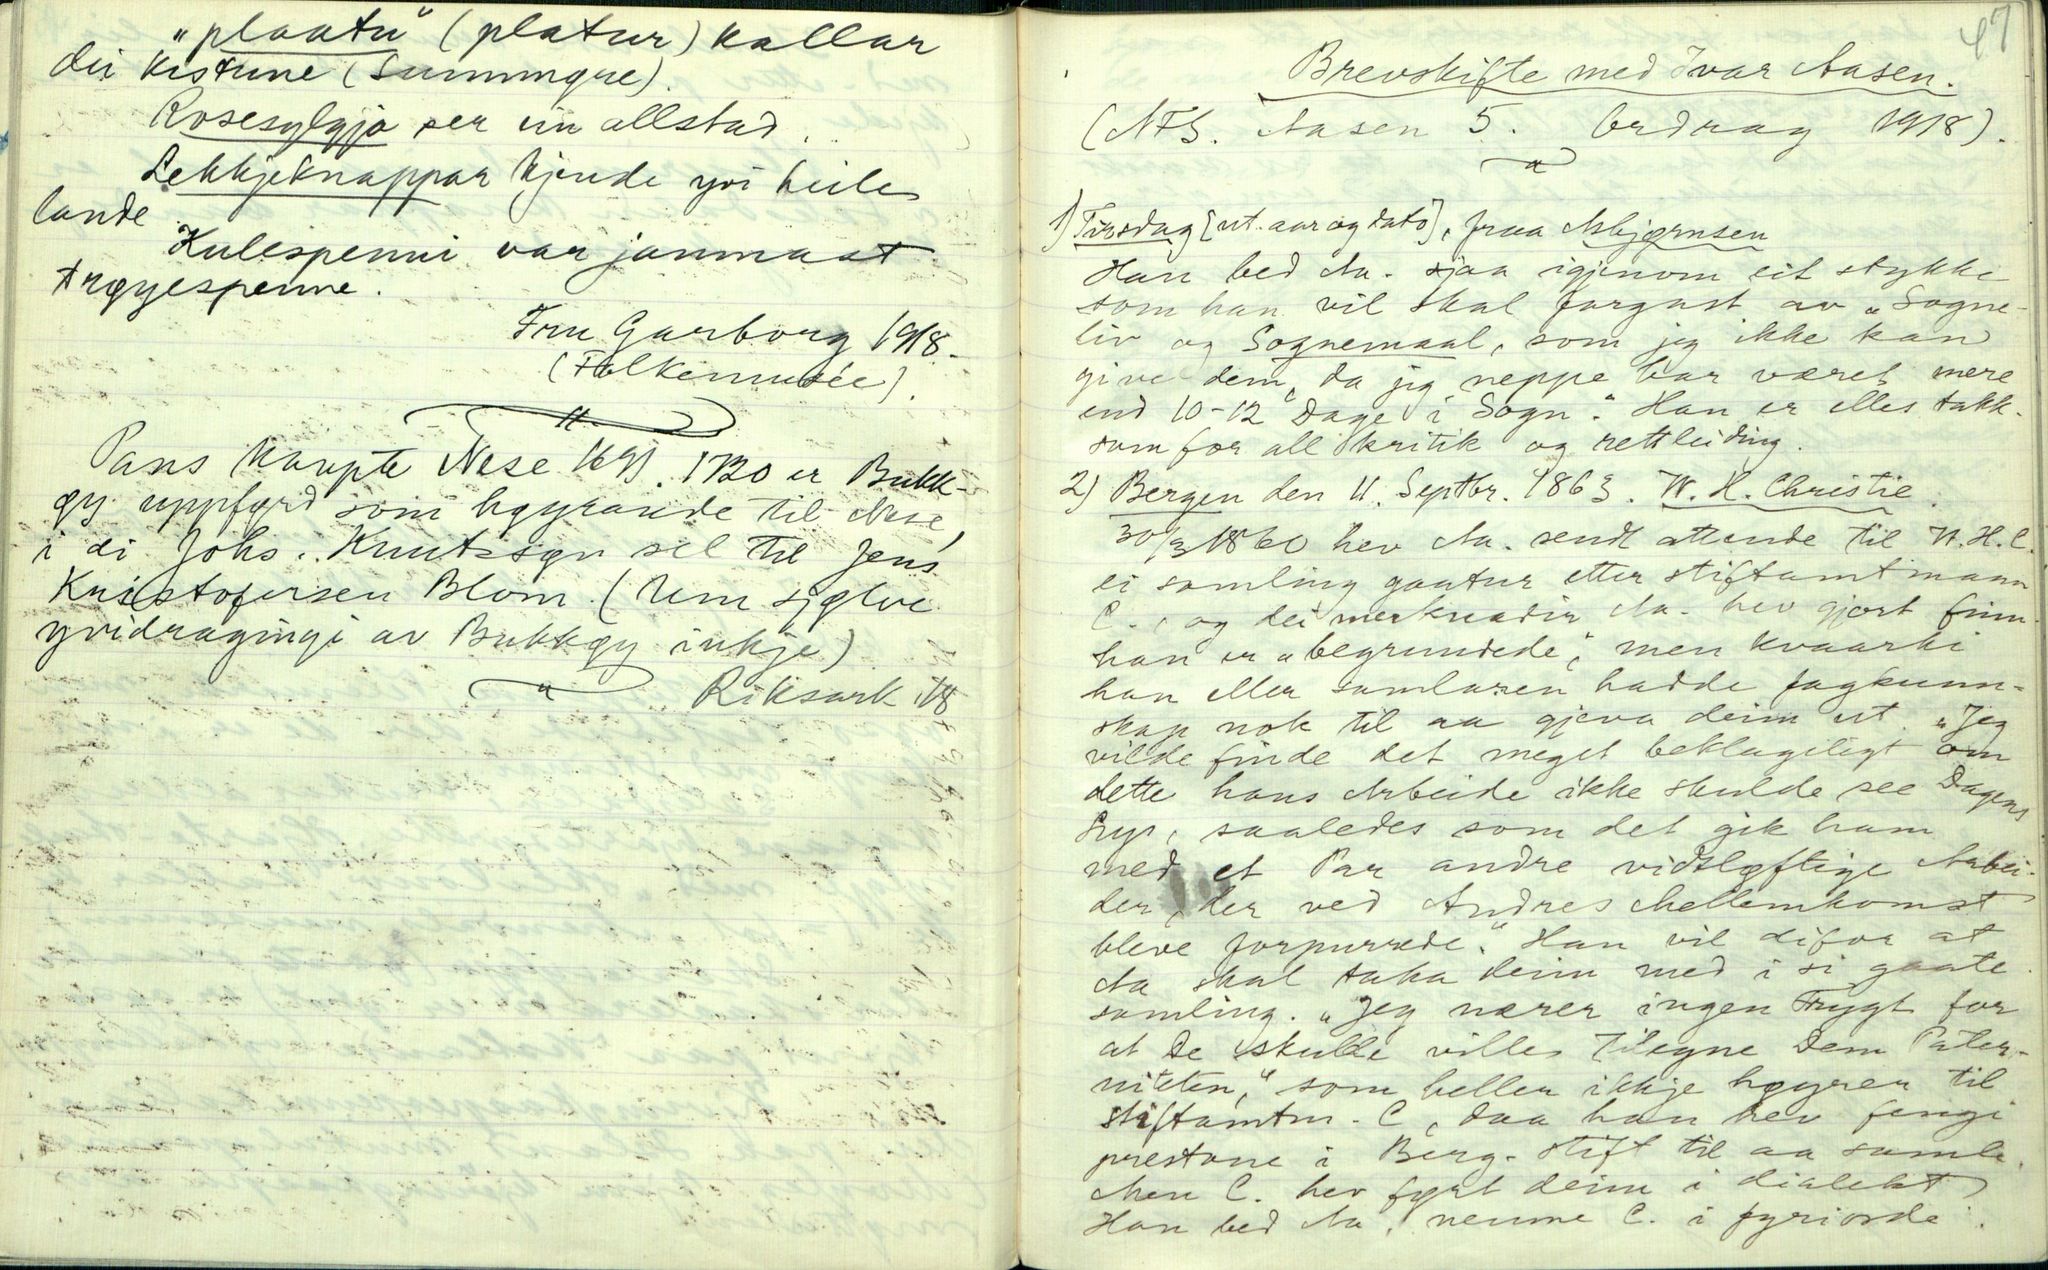 „plaatu“ (platur) kallar
dei kistune (Sunnmøre).
Rosesylgjo ser ein allstad.
Lekkjeknappar kjende yvi heile
landø
Kulespenni var jammaast
trøyespenne.
Fru Garborg 1918.
(Folkemusée).
Pans kaupte Nese 1691. 1720 er Bukk-
øy uppførd som høyrande til Nese,
i di Johs. Knutssøn sel til Jens
Kristofersen Blom. (Um sjølve
yvidragingi av Bukkøy inkje)
Riksark. 18
47
Brevskifte med Ivar Aasen.
(NFS. Aasen 5. Ordrag 1918).
1) Tirsdag [ut. aar og dato], fraa Asbjørnsen
Han bed Aa. sjaa igjenom eit stykke
som han vil skal fargast av „Sogne-
liv og Sognemaal, som jeg ikke kan
give dem, da jeg neppe har været mere
end 10-12 Dage i Sogn.“ Han er elles takk-
sam for all kritik og rettleiding.
2) Bergen den 11. Septbr. 1863. W. H. Christie.
30/3 1860 hev Aa. sendt attende til W. H. C.
ei samling gaatur etter stiftamtmann
C., og dei merknadir Aa. hev gjort finn
han er „begrundede“, men kvaarki
han eller samlaren hadde fagkunn-
skap nok til aa gjeva deim ut. „Jeg
vilde finde det meget beklageligt om
dette hans Arbeide ikke skulde see Dagens
Lys, saaledes som det gik ham
med et Par andre vidtløftige Arbei-
der, der ved Andres Mellemkomst
bleve forpurrede.“ Han vil difor at
Aa skal taka deim med i si gaate-
samling. „Jeg nærer ingen Frygt for
at De skulde ville Tilegne Dem Pater-
niteten,“ som heller ikkje høyrer til
stiftamtm. C, daa han hev fengi
prestane i Berg. stift til aa samla.
Men C. hev ført deim i dialekt
Han bed Aa, nemne C. i fyriorde.